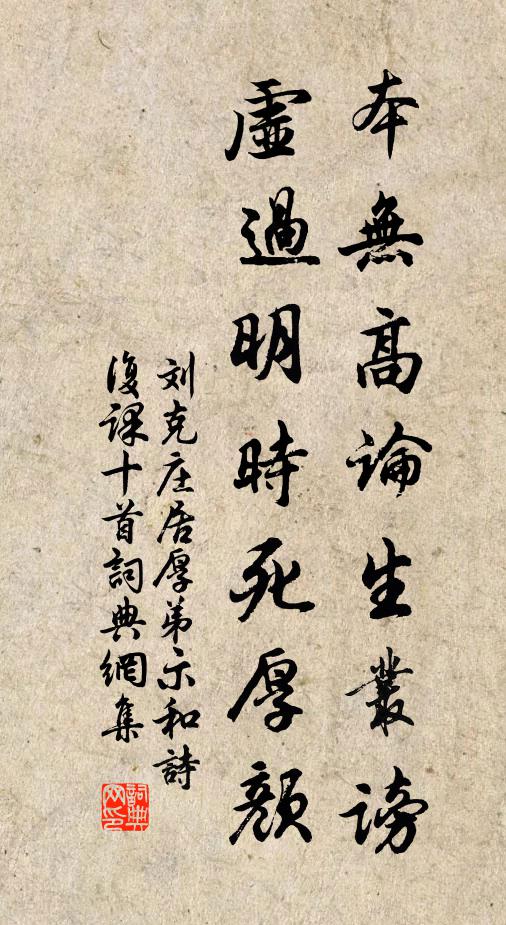 本無高論生叢謗
虛過明時死厚顏
刘克庄居厚弟示和詩
復課十首詞典網集
詞典
网印